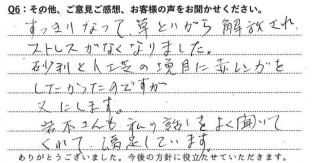 Q6：その他、ご意見ご感想、お客様の声をお聞かせください。
すっきりなって草とりから解放され
ストレスがなくなりました。
砂利と人工芝の境目に赤レンガを
したかったのですが
又にします。
岩本さんも私の話しをよく聞いて
くれて満足しています
ありがとうございました。今後の方針に役立たせていただきます。